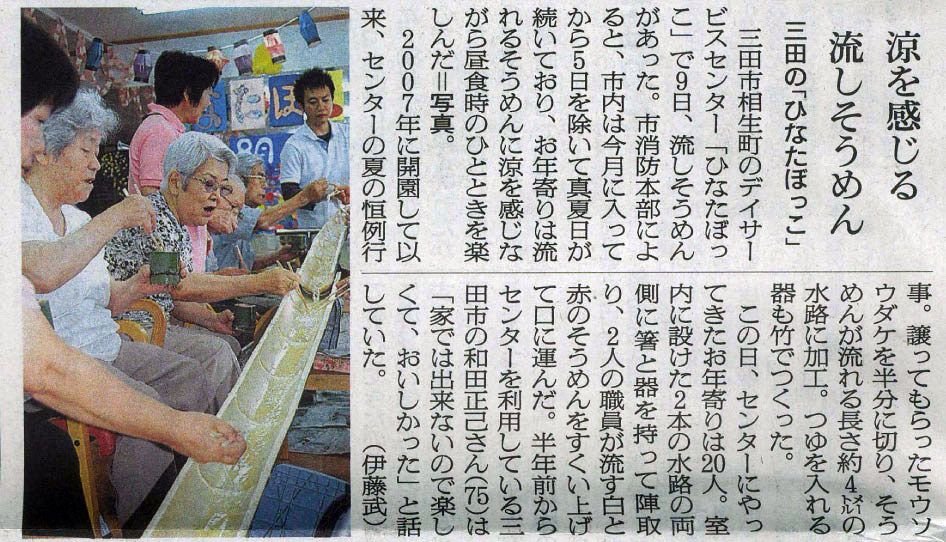 涼を感じる
流しそうめん
三田の「ひなたぼっこ」
三田市相生町のデイサー
ビスセンター「ひなたぼっ
こ」で9日、流しそうめん
があった。市消防本部によ
ると、市内は今月に入って
から5日を除いて真夏日が
続いており、お年寄りは流
れるそうめんに涼を感じな
がら昼食時のひとときを楽
しんだ＝写真。
2007年に開園して以
来、センターの夏の恒例行
事。譲ってもらったモウソ
ウダケを半分に切り、そう
めんが流れる長さ約4㍍の
水路に加工。つゆを入れる
器も竹でつくった。
この日、センターにやっ
てきたお年寄りは20人。室
内に設けた2本の水路の両
側に箸と器を持って陣取
り、2人の職員が流す白と
赤のそうめんをすくい上げ
て口に運んだ。半年前から
センターを利用している三
田市の和田正己さん(75)は
「家では出来ないので楽し
くて、おいしかった」と話
していた。　（伊藤武）
なたぼ